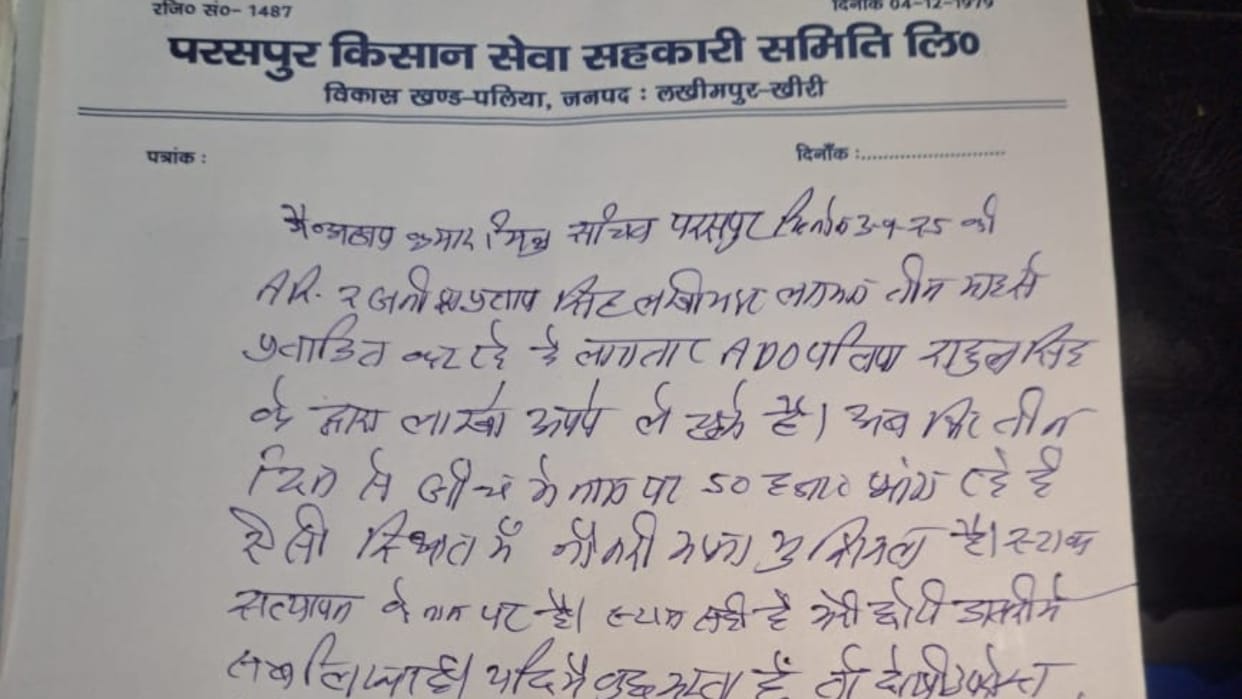 रजि० सं०- 1487
दिनांक 04-12-1979
परसपुर किसान सेवा सहकारी समिति लि०
विकास खण्ड-पलिया, जनपद : लखीमपुर-खीरी
पत्रांक :
दिनाँक :..........................
मै कुमार मिश्र सचिव परसपुर 3-9-25 को
AR. रजनीश प्रताप सिंह लखीमपुर लगभग तीन माह से
प्रताडित कर रहे है लगातार ADO पलिया राहुल सिंह
के द्वारा लाखो रूपये ले चुके है। अब फिर तीन
दिन से जाँच के नाम पर 50 हजार मांग रहे है
ऐसी स्थिति में नौकरी करना मुश्किल है। स्टाक
सत्यापन के नाम पर है। स्टाक सही है मेरी छोटी डायरी मे
सब लिखा है। यदि मै कुछ करता हूँ तो दोषी